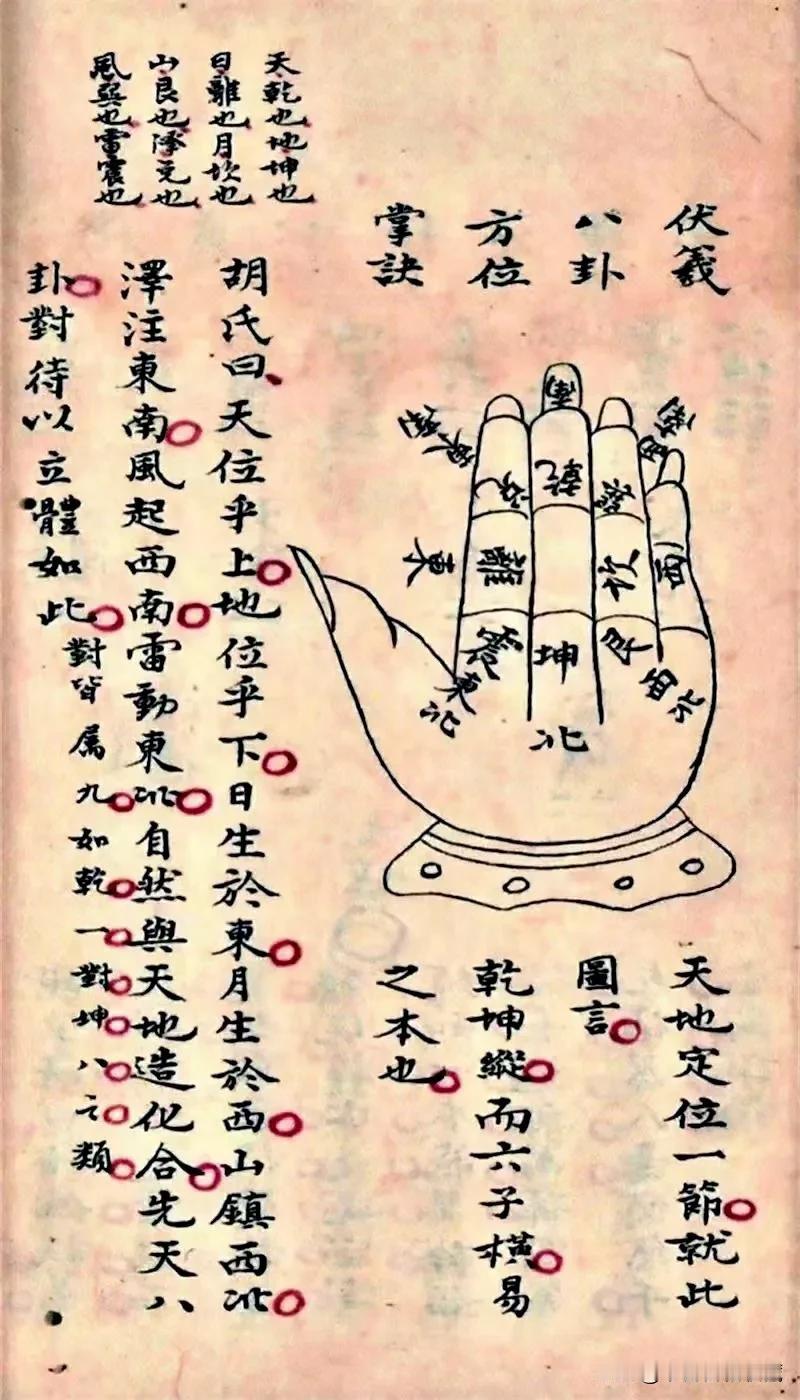 伏羲
八卦
方位
掌訣
南
東南
西南
兌
乾
巽
東
離
坎
西
震
坤
艮
東北
北
西北
天地定位一節就此
圖言
乾坤縱而六子橫易
之本也
天乾也地坤也
日離也月坎也
山艮也澤兌也
風巽也雷震也
胡氏曰天位乎上地位乎下日生於東月生於西山鎮西北
澤注東南風起西南雷動東北自然與天地造化合先天八
卦對待以立體如此
對皆属九如乾一對坤八之類